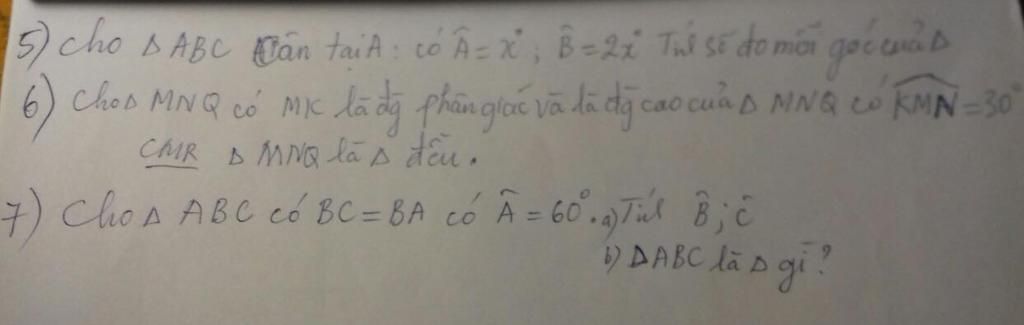 5) Cho Δ ABC Cân tại A: có Â = x°; B̂ = 2x° Tính số đo mỗi góc của Δ
6) Cho Δ MNQ có MK là đg phân giác và là đg cao của Δ MNQ có KMN = 30°
CMR Δ MNQ là Δ đều.
7) Cho Δ ABC có BC = BA có Â = 60°. a) Tính B̂; Ĉ
b) Δ ABC là Δ gì?